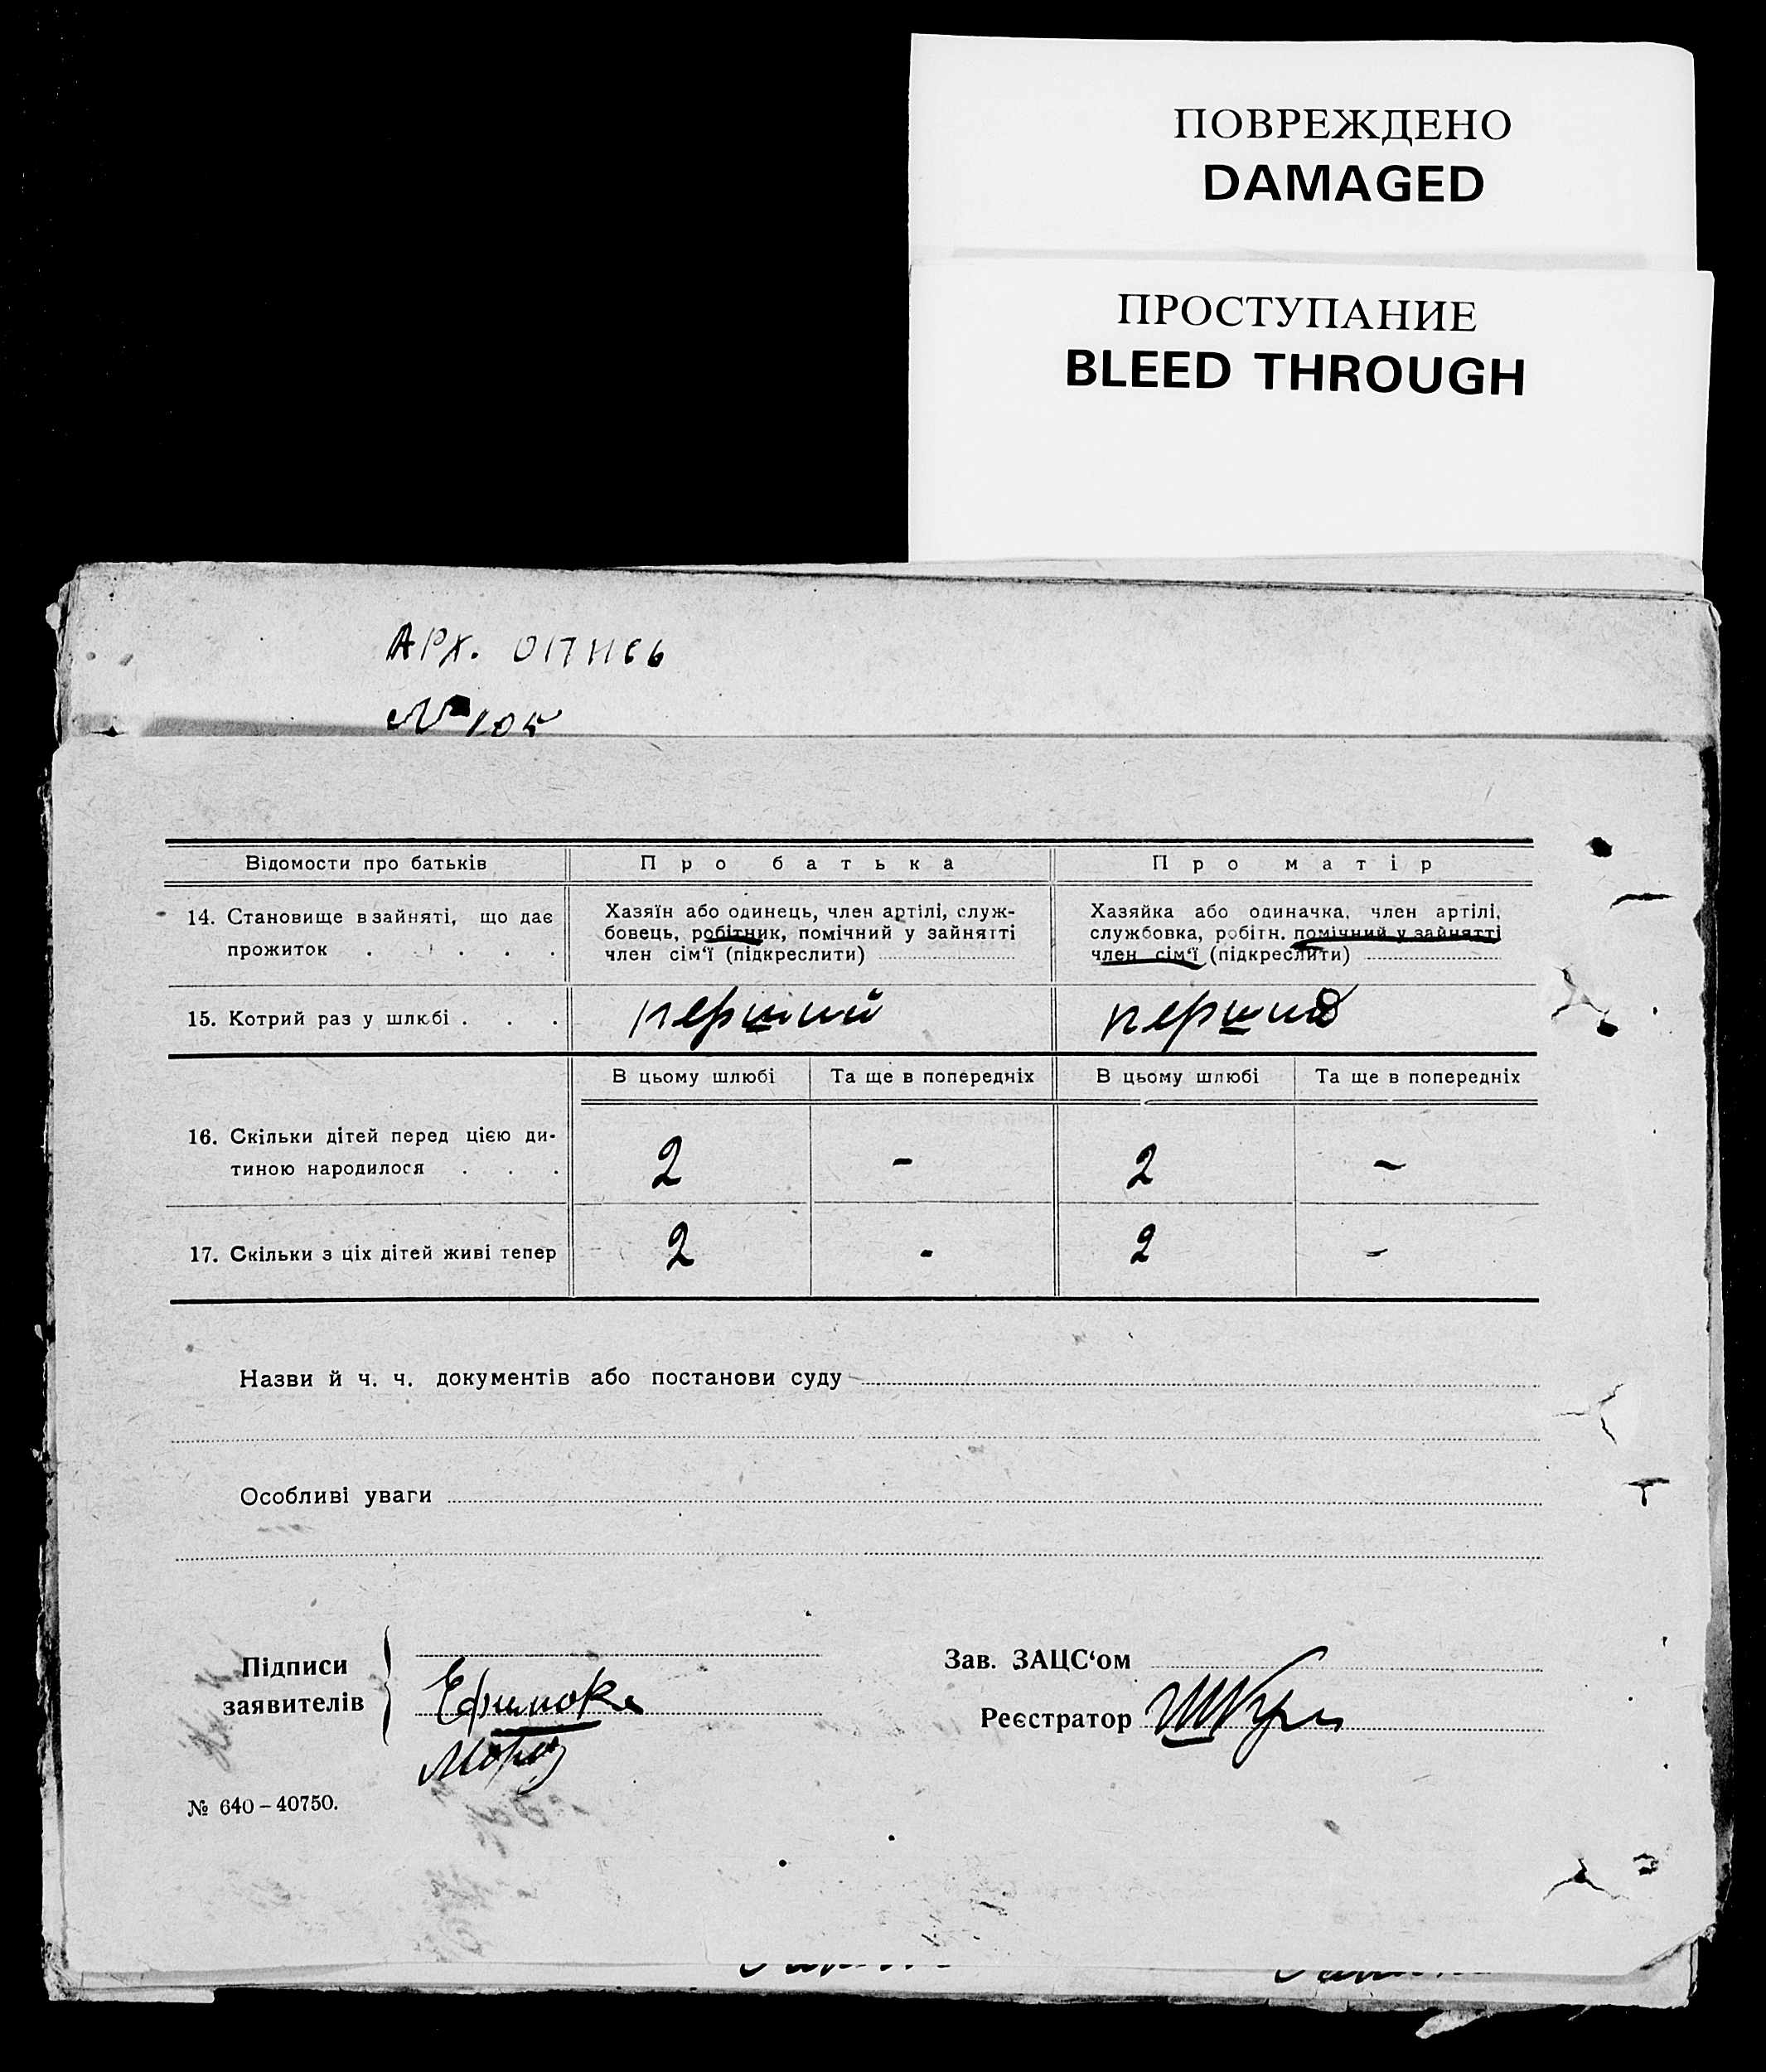 ПОВРЕЖДЕНО
DAMAGED
ПРОСТУПАНИЕ
BLEED THROUGH
АРХ.
№ 105
Відомости про батьків
Про батька
Про матір
14. Становище в зайняті, що дає
прожиток . . . . .
Хазяїн або одинець, член артілі, служ-
бовець, робітник, помічний у зайнятті
член сім‘ї (підкреслити)
Хазяйка або одиначка, член артілі,
службовка, робітн. помічний у зайнятті
член сім‘ї (підкреслити)
15. Котрий раз у шлюбі . . .
перший
перший
В цьому шлюбі
Та ще в попередніх
В цьому шлюбі
Та ще в попередніх
16. Скільки дітей перед цією ди-
тиною народилося . . .
2 - 2 -
17. Скільки з ціх дітей живі тепер
2 - 2 -
Назви й ч. ч. документів або постанови суду
Особливі уваги
Підписи
заявителів
Мороз
Зав. ЗАЦС‘ом
Реєстратор
№ 640 – 40750.